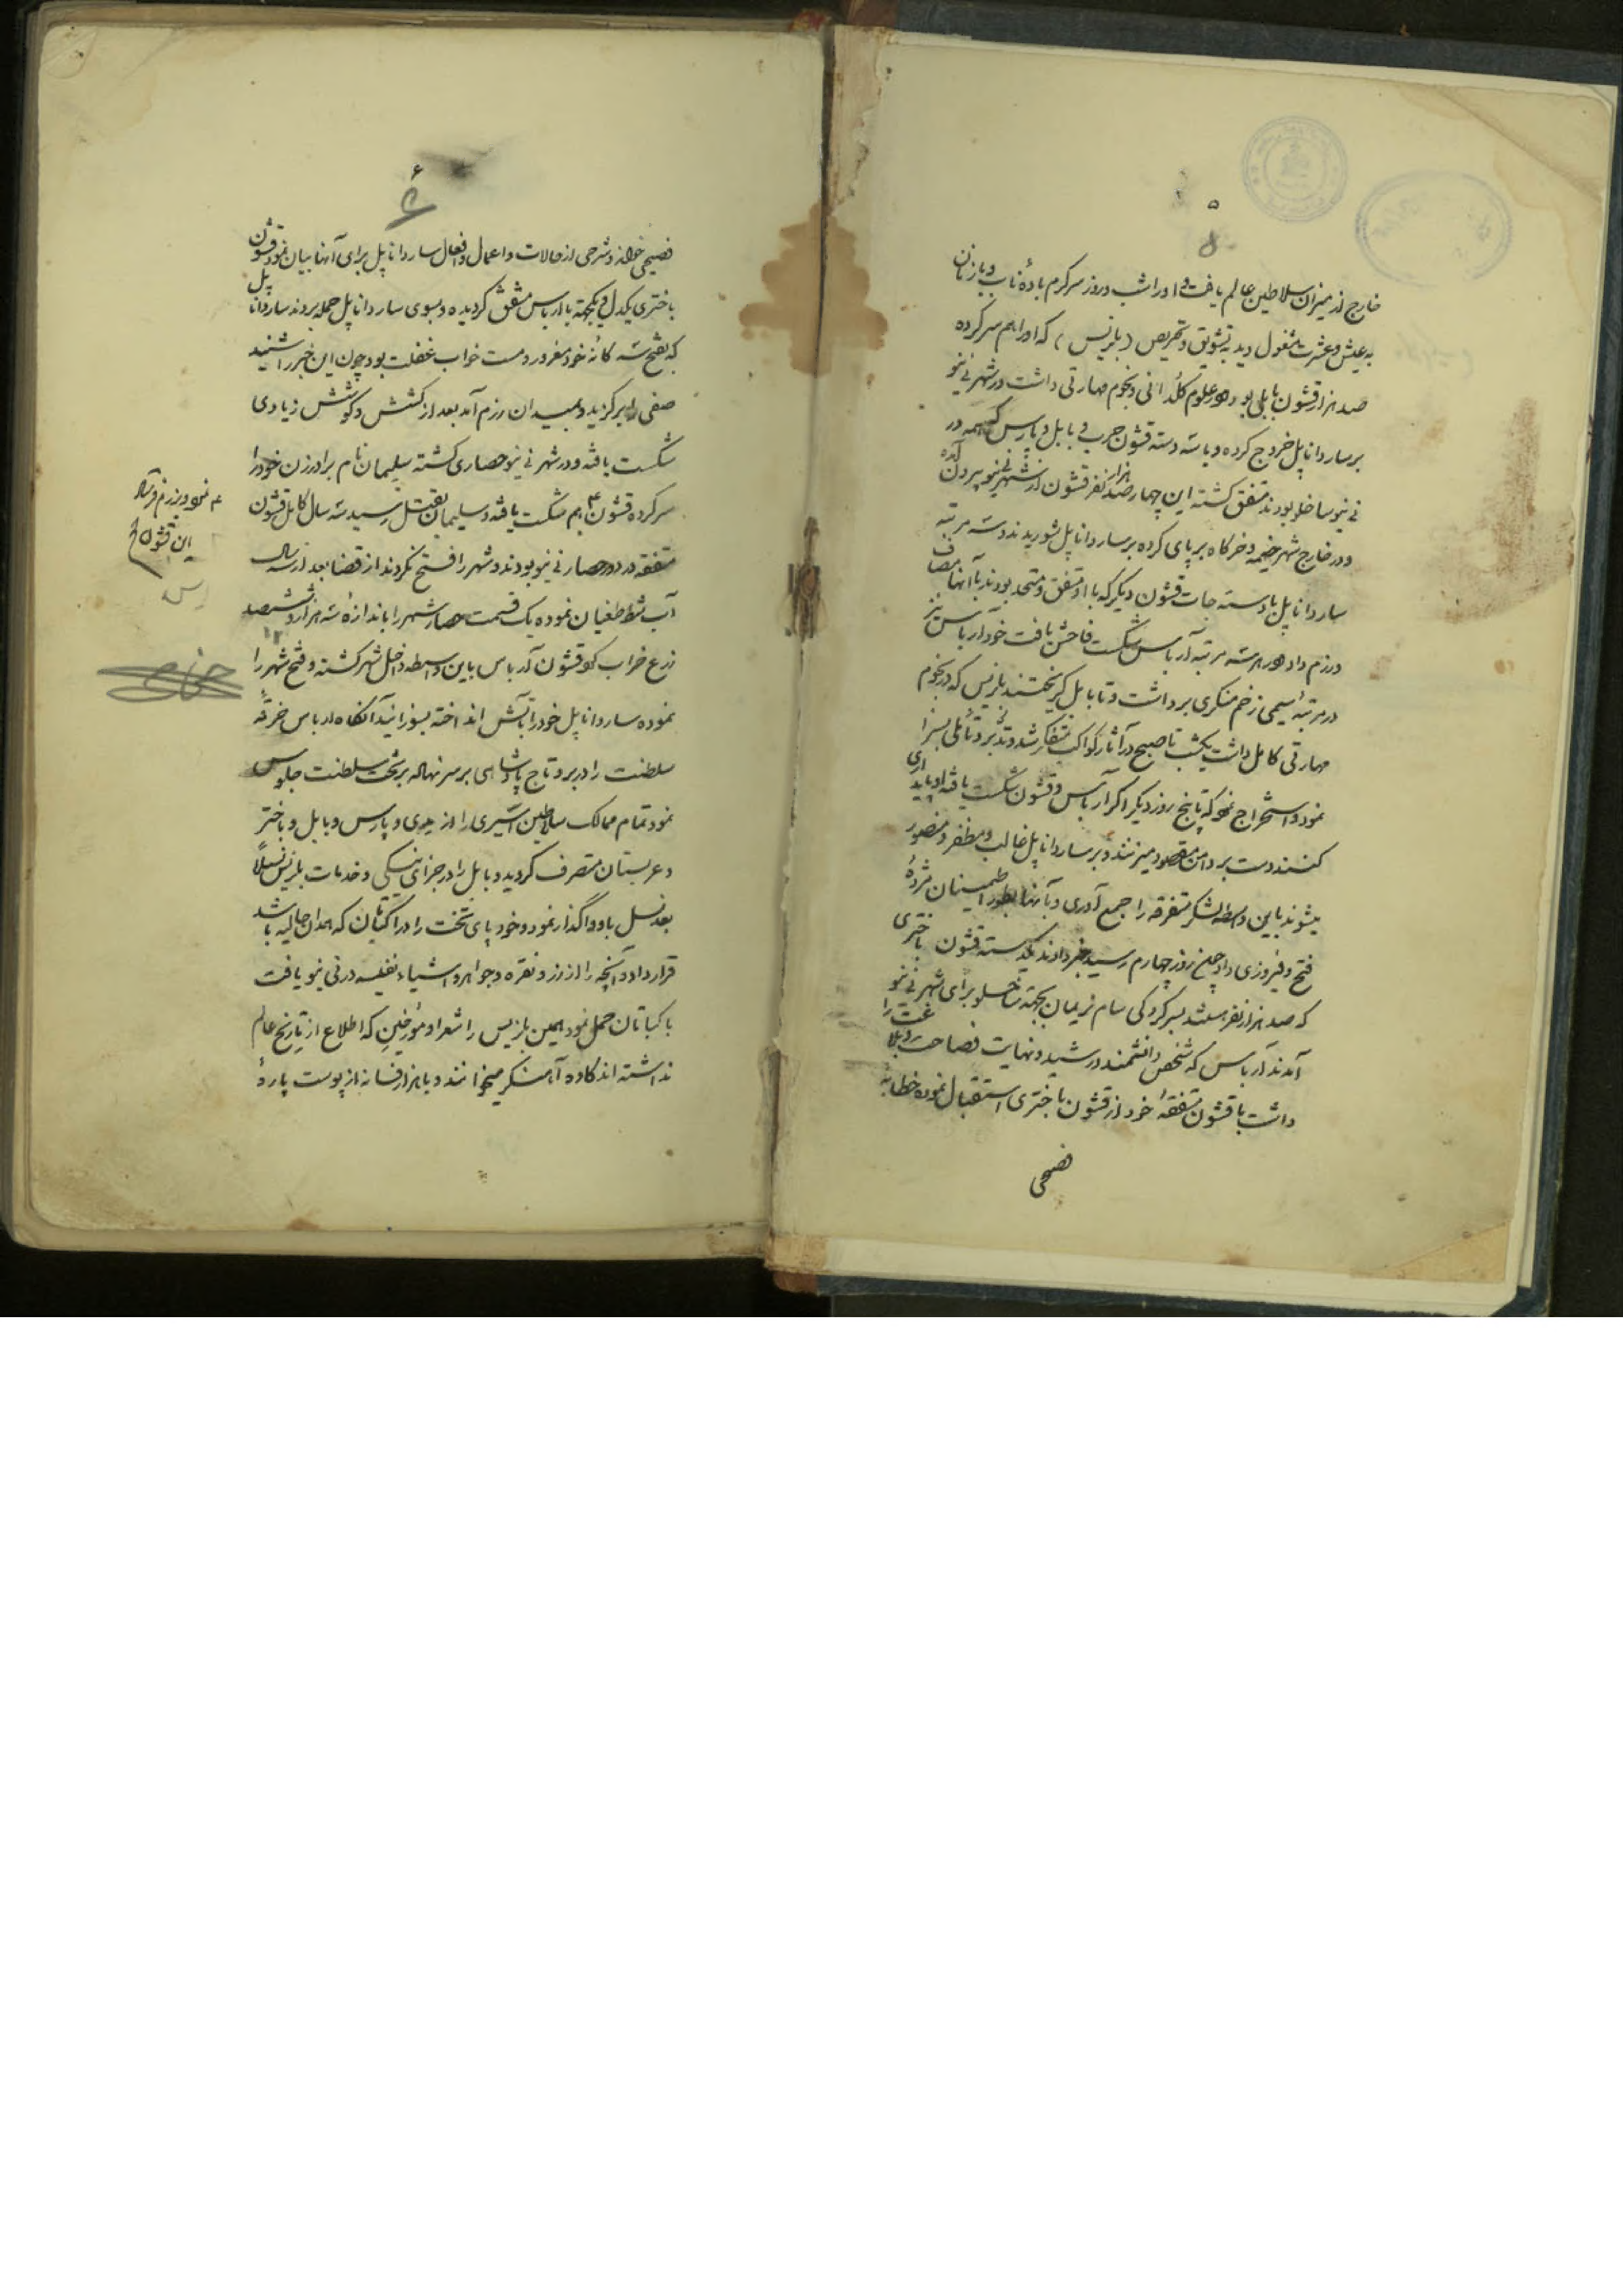 ۵
خارج از میزان سلاطین عالم یافت و او را شب و روز سرگرم بادهٔ ناب و با زنان
به عیش و عشرت مشغول دید به تشویق و تحریص (بلزیس) که او را هم سرکرده
صد هزار قشون بابلی بود و در علوم کلدانی و نجوم مهارتی داشت در شهر نی نیو
بر ساردانا پل خروج کرده و با سه دسته قشون حرب و بابل و پارس که همه در
نی نیو ساخلو بودند متفق گشته این چهار صد هزار نفر قشون از شهر نی نیو بیرون آمده
و در خارج شهر خیمه و خرگاه بر پای کرده بر ساردانا پل شوریدند و سه مرتبه
ساردانا پل با دسته جات قشون دیگر که با او متفق و متحد بودند با آنها مصاف
و رزم داد و در هر سه مرتبه آرباس شکست فاحش یافت خود آرباس نیز
در مرتبهٔ سیمی زخم منکری برداشت و تا بابل گریختند بلزیس که در نجوم
مهارتی کامل داشت یکشب تا صبح در آثار کواکب متفکر شد و تدبّر و تأملی بسزا
نمود و استخراج نمود که تا پنج روز دیگر اگر آرباس و قشون شکست یافته او پایداری
کنند دست بر دامن مقصود میزنند و بر ساردانا پل غالب و مظفر و منصور
میشوند باین واسطه لشکر متفرقه را جمع آوری و بآنها بطور اطمینان مژدهٔ
فتح و فیروزی داد چون روز چهارم رسید خبر دادند یکدسته قشون باختری
که صد هزار نفر هستند بسرکردگی سام نریمان بجهت ساخلو برای شهر نی نیو
آمدند آرباس که شخص دانشمند و رشید و نهایت فصاحت و بلاغت را
داشت با قشون متفقهٔ خود از قشون باختری استقبال نموده خطابهٔ
فصیحی
۶
فصیحی خوانده و شرحی از حالات و اعمال و افعال ساردانا پل برای آنها بیان نمود قشون
باختری یکدل و یکجهت با ارباس متفق گردیده و بسوی ساردانا پل حمله بردند ساردانا پل
که بفتح سه گانه خود مغرور و مست خواب غفلت بود چون این خبر را شنید
صفی را برگزید و بمیدان رزم آمد بعد از کشش و کوشش زیادی
شکست یافته و در شهر نی نیو حصاری گشته سلیمان نام برادر زن خود را
سرکرده قشون هم شکست یافته و سلیمان بقتل رسید سه سال کامل قشون
متفقه در دور حصار نی نیو بودند و شهر را فتح نکردند از قضا بعد از سه سال
آب شط طغیان نموده یک قسمت حصار شهر را باندازهٔ سه هزار و ششصد
زرع خراب کرد قشون آرباس باین واسطه داخل شهر گشته و فتح شهر را
نموده ساردانا پل خود را بآتش انداخته بسوزانید آنگاه ارباس خرقهٔ
سلطنت را در بر و تاج پادشاهی بر سر نهاد بر تخت سلطنت جلوس
نمود تمام ممالک سلاطین آسیری را از مدی و پارس و بابل و باختر
و عربستان متصرف گردید و بابل را در جزای نیکی و خدمات بلزیس نسلاً
بعد نسل باو واگذار نمود و خود پای تخت را در اکباتان که همدان حالیه باشد
قرار داد و آنچه را از زر و نقره و جواهر و اشیاء نفیسه در نی نیو یافت
باکباتان حمل نمود همین بلزیس را شعرا و مؤرخین که اطلاع از تاریخ عالم
نداشته اند کاوه آهنگر میخوانند و با هزار افسانه از پوست پارهٔ
نمود و برزم فرستاد
این قشون